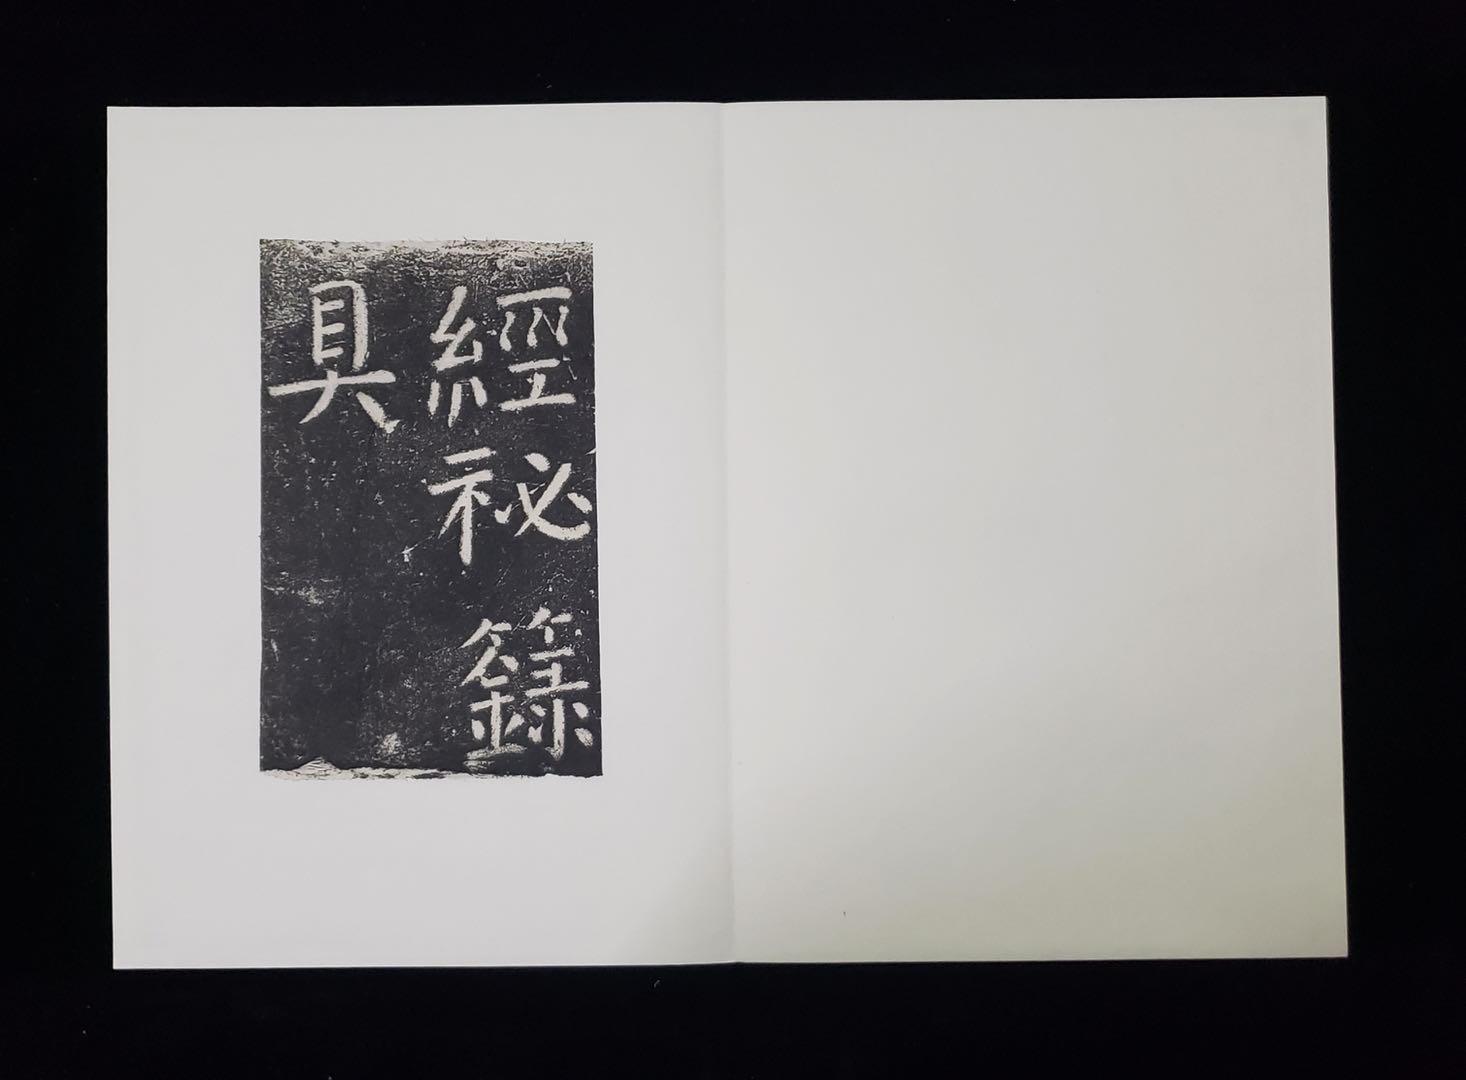 經祕籙
具